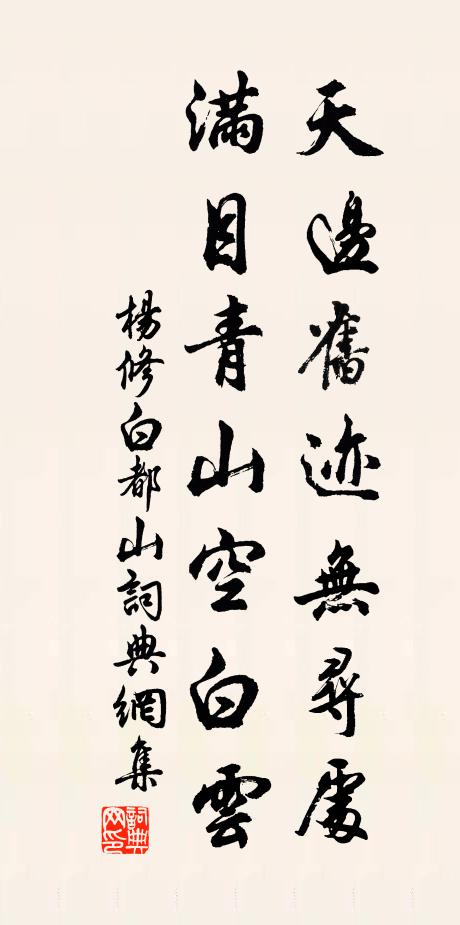 天邊舊迹無尋處
滿目青山空白雲
楊修白都山詞典網集
詞典网印